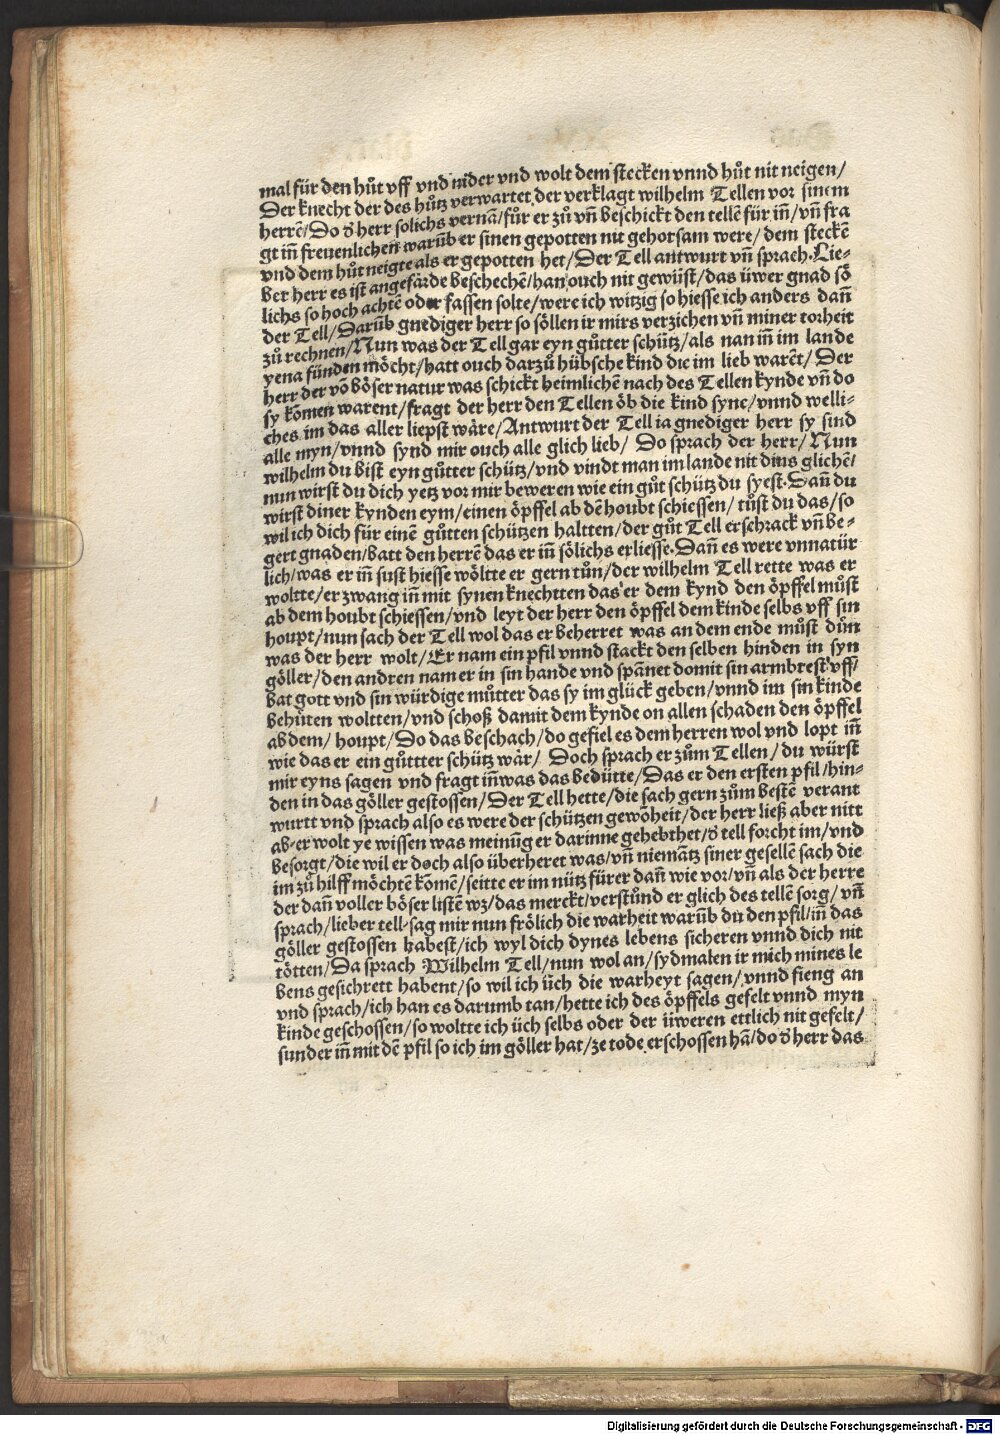 mal für den hůt vff vnd nider vnd wolt dem stecken vnnd hůt nit neigen/
Der knecht der des hůtz verwartet der verklagt wilhelm Tellen vor sinem
herrē/Do d̓ herr solichs vernā/für er zů vn̄ beschickt den tellē für in̄/vn̄ fra
gt in̄ freuenlichen warūb er sinen gepotten nit gehorsam were/dem steckē
vnd dem hůt neigte als er gepotten het/Der Tell antwurt vn̄ sprach.Lie-
ber herr es ist angefärde beschechē/han ouch nit gewüst/das üwer gnad sö
lichs so hoch achtē oder fassen solte/were ich witzig so hiesse ich anders dan̄
der Tell/Darūb gnediger herr so söllen ir mirs verzichen vn̄ miner torheit
zů rechnen/Nun was der Tell gar eyn gůtter schütz/als nan in̄ im lande
yena fünden möcht/hatt ouch darzů hübsche kind die im lieb warēt/Der
herr der vō böser natur was schickt heimlichē nach des Tellen kynde vn̄ do
sy kōmen warent/fragt der herr den Tellen öb die kind syne/vnnd welli-
ches im das aller liepst wäre/Antwurt der Tell ia gnediger herr sy sind
alle myn/vnnd synd mir ouch alle glich lieb/ Do sprach der herr/Nun
wilhelm du bist eyn gůtter schütz/vnd vindt man im lande nit dins glichē/
nun wirst du dich yetz vor mir beweren wie ein gůt schütz du syest.Dan̄ du
wirst diner kynden eym/einen öpffel ab dē houbt schiessen/tůst du das/so
wil ich dich für einē gůtten schützen haltten/der gůt Tell erschrack vn̄ be-
gert gnaden/batt den herrē das er in̄ sölichs erliesse.Dan̄ es were vnnatür
lich/was er in̄ sust hiesse wöltte er gern tůn/der wilhelm Tell rette was er
woltte/er zwang in̄ mit synen knechtten das er dem kynd den öpffel můst
ab dem houbt schiessen/vnd leyt der herr den öpffel dem kinde selbs vff sin
houpt/nun sach der Tell wol das er beherret was an dem ende můst důn
was der herr wolt/Er nam ein pfil vnnd stackt den selben hinden in syn
göller/den andren nam er in sin hande vnd spānet domit sin armbrest vff/
bat gott vnd sin würdige můtter das sy im glück geben/vnnd im sin kinde
behůten woltten/vnd schoß damit dem kynde on allen schaden den öpffel
ab dem/houpt/Do das beschach/do gefiel es dem herren wol vnd lopt in̄
wie das er ein gůttter schütz wär/ Doch sprach er zům Tellen/du würst
mir eyns sagen vnd fragt in̄ was das bedütte/Das er den ersten pfil/hin-
den in das göller gestossen/Der Tell hette/die sach gern zům bestē verant
wurtt vnd sprach also es were der schützen gewōheit/der herr ließ aber nitt
ab-er wolt ye wissen was meinūg er darinne gehebthet/d̓ tell forcht im/vnd
besorgt/die wil er doch also überheret was/vn̄ niemātz siner gesellē sach die
im zů hilff möchtē kōmē/seitte er im nütz fürer dan̄ wie vor/vn̄ als der herre
der dan̄ voller böser listē wz/das merckt/verstůnd er glich des tellē sorg/vn̄
sprach/lieber tell-sag mir nun frölich die warheit warūb du den pfil/in̄ das
göller gestossen habest/ich wyl dich dynes lebens sicheren vnnd dich nit
tötten/Da sprach Wilhelm Tell/nun wol an/sydmalen ir mich mines le
bens gesichrett habent/so wil ich üch die warheyt sagen/vnnd fieng an
vnd sprach/ich han es darumb tan/hette ich des öpffels gefelt vnnd myn
kinde geschossen/so woltte ich üch selbs oder der üweren ettlich nit gefelt/
sunder in̄ mit dē pfil so ich im göller hat/ze tode erschossen hā/do d̓ herr das
Digitalisierung gefördert durch die Deutsche Forschungsgemeinschaft - DFG